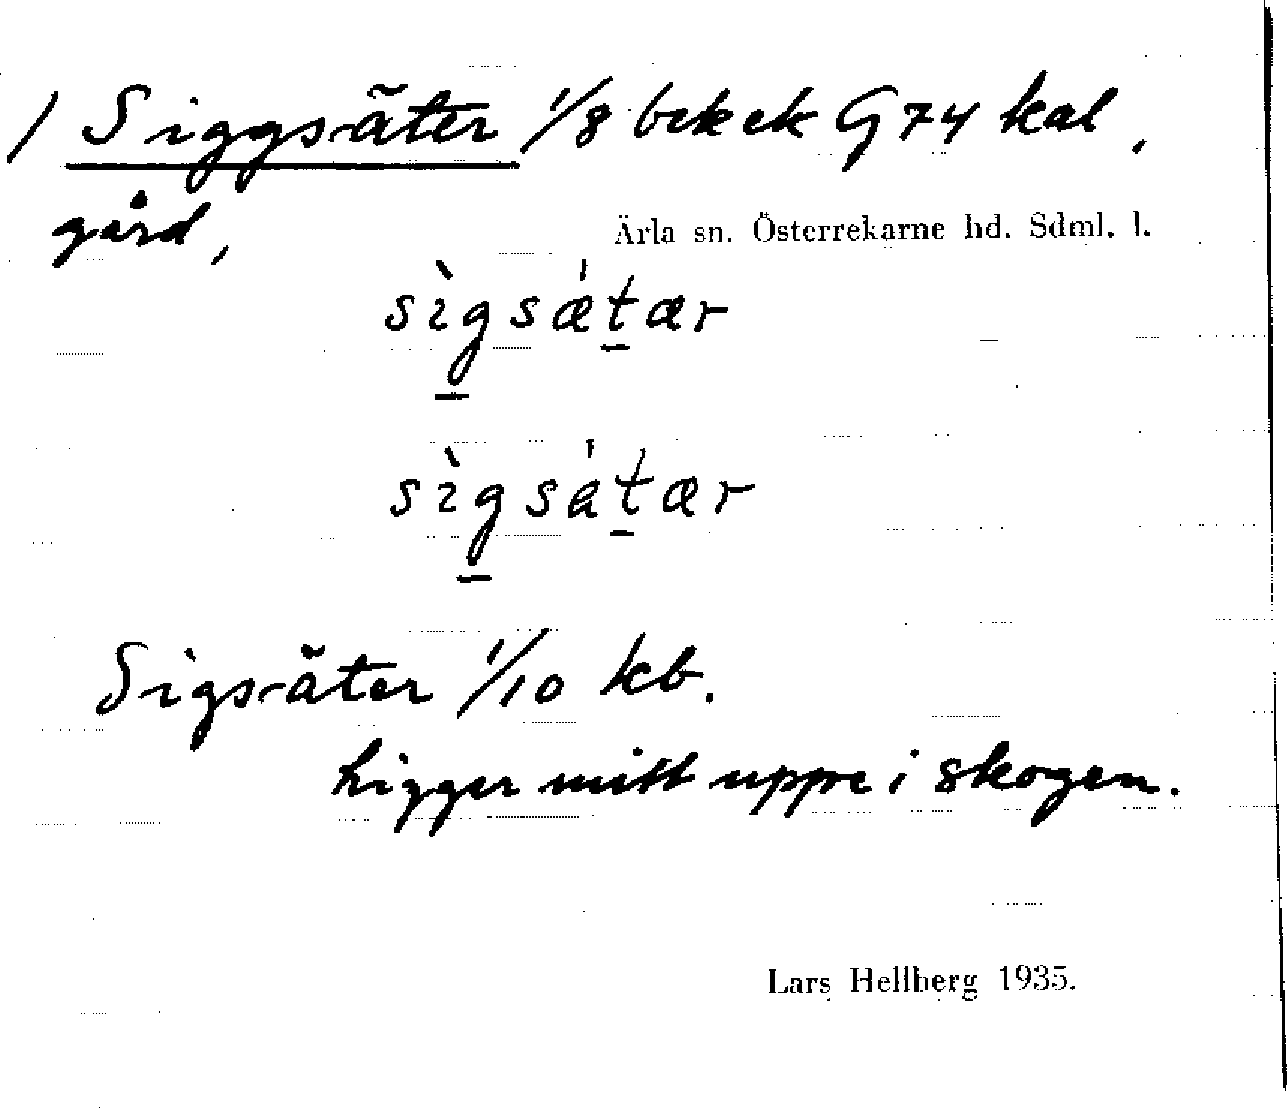 / Siggsäter 1/8 bekek G74 kal.
gård,
Ärla sn. Österrekarne hd. Sdml. l.
sìgsǽtær
sìgsátær
Sigsäter 1/10 kb.
ligger mitt uppe i skogen.
Lars Hellberg 1935.